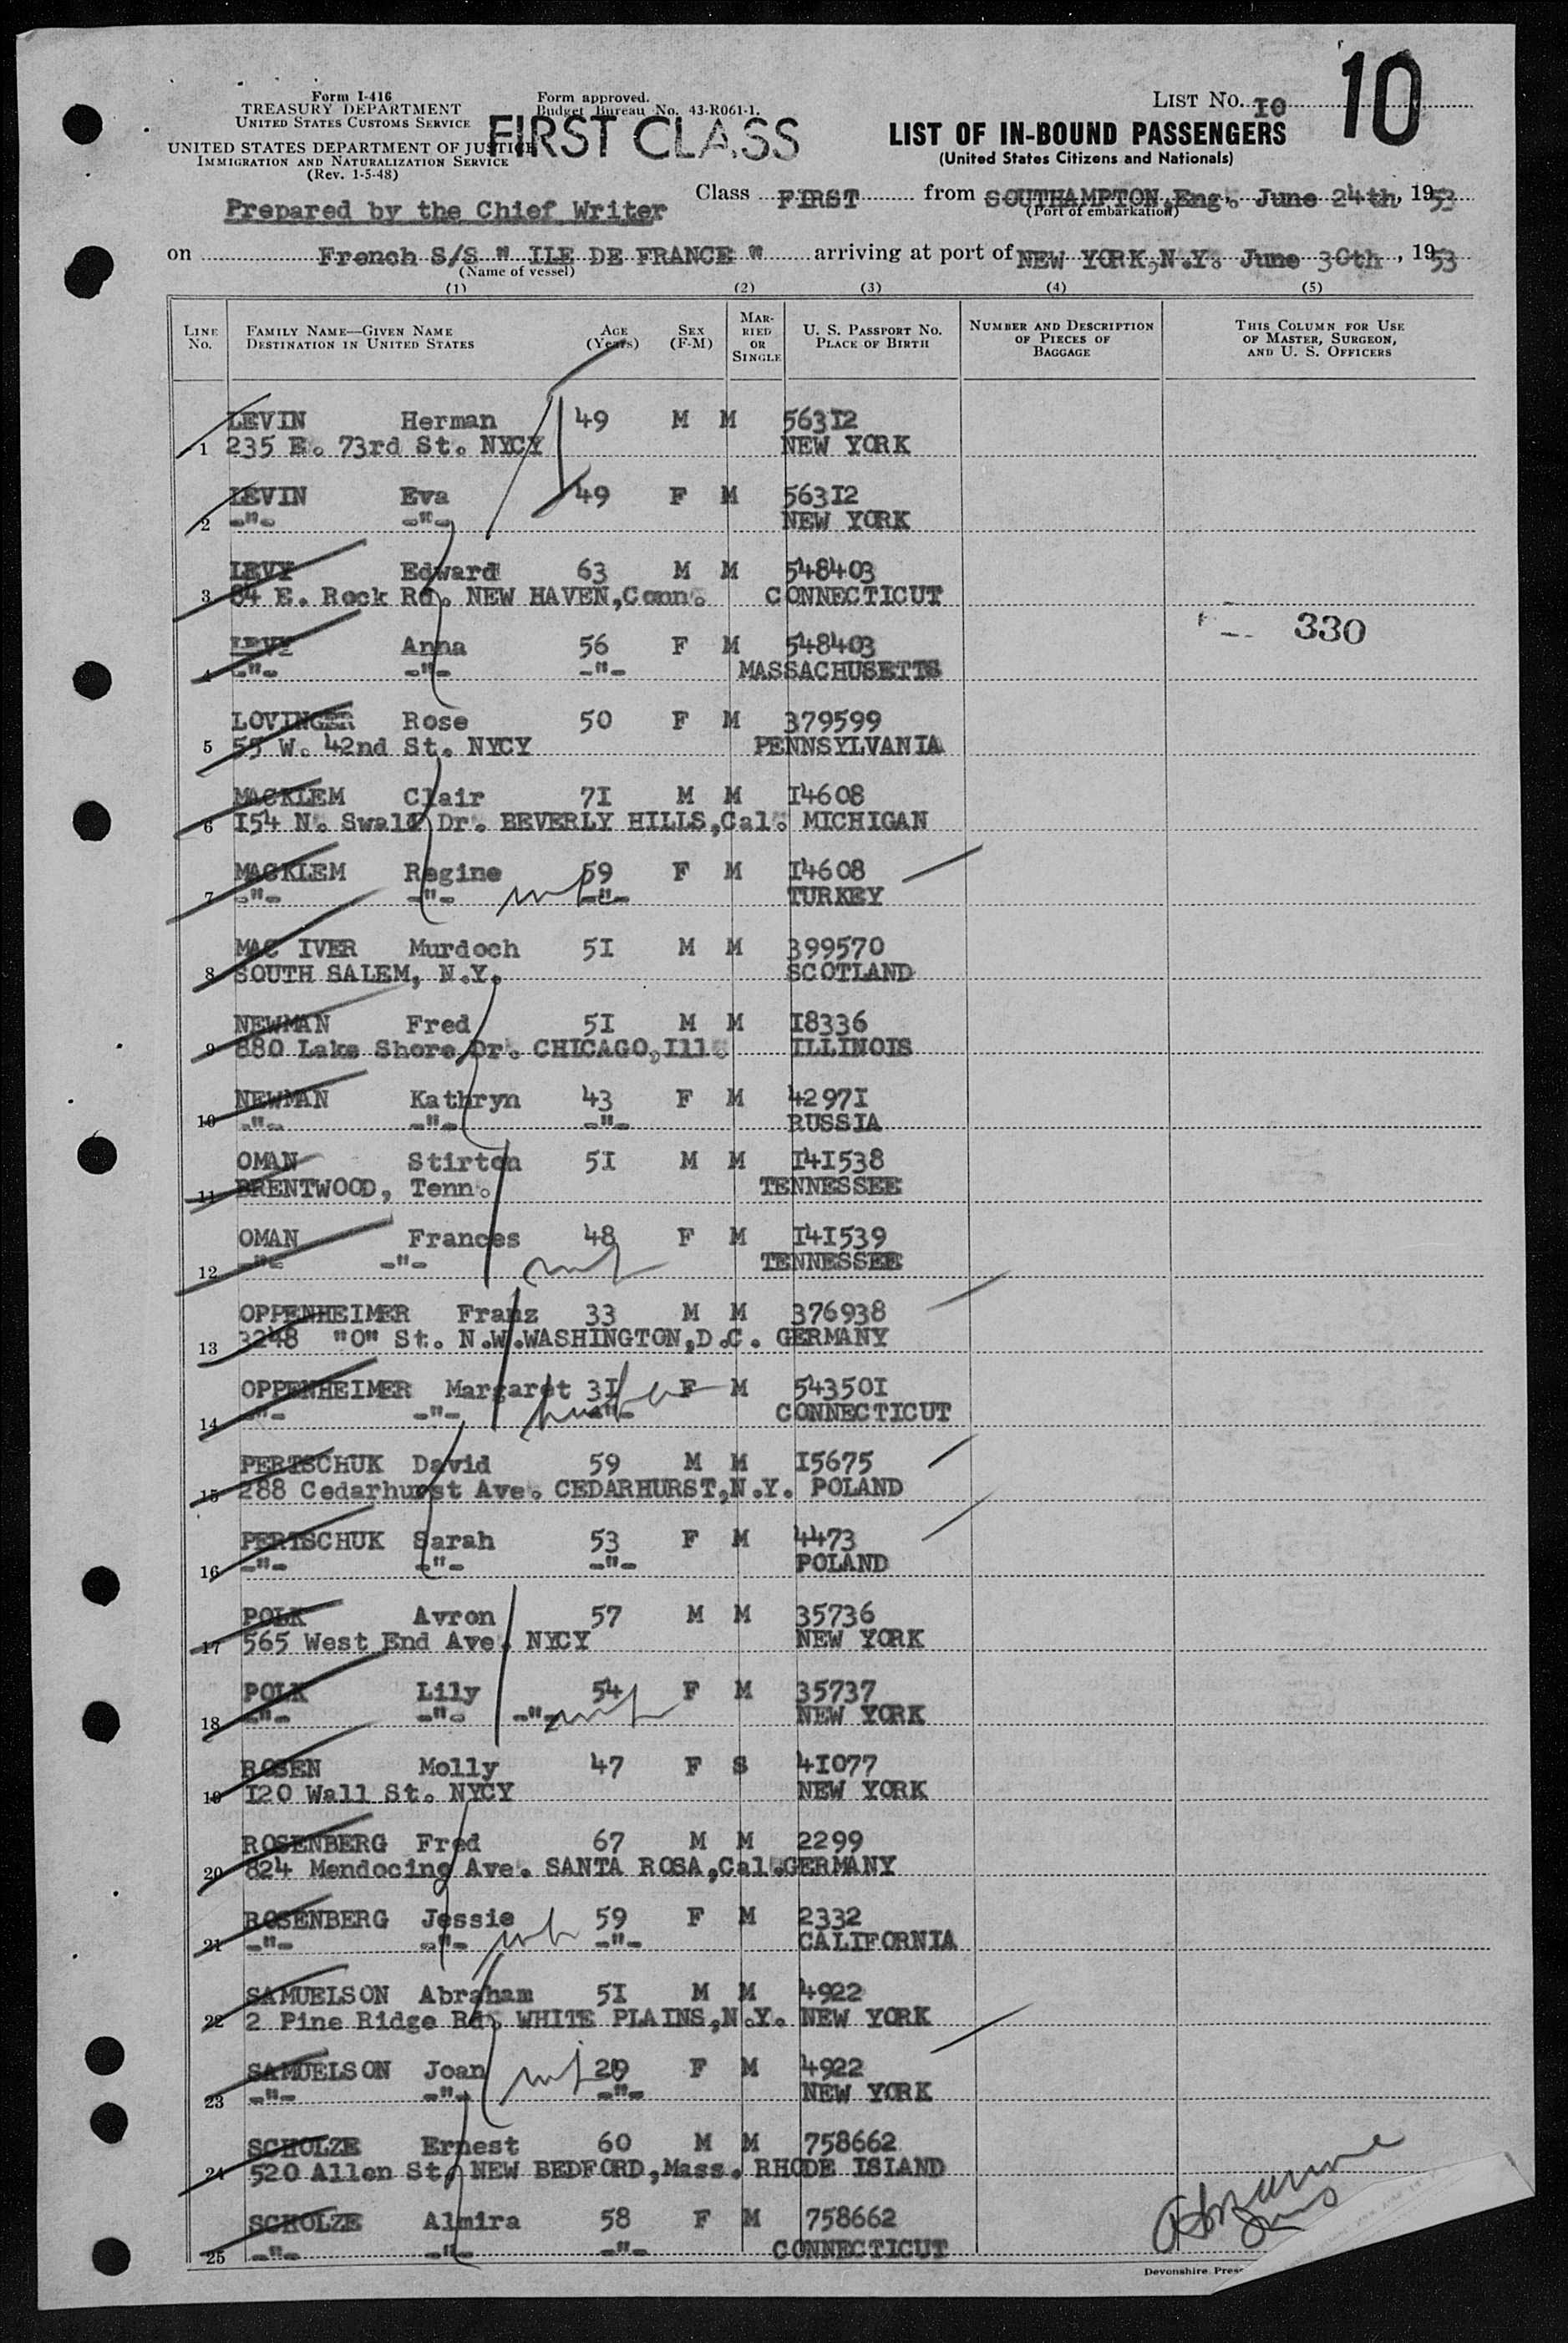 10
Form I-416
TREASURY DEPARTMENT
UNITED STATES CUSTOMS SERVICE
UNITED STATES DEPARTMENT OF JUSTICE
IMMIGRATION AND NATURALIZATION SERVICE
(Rev. 1-5-48)
Form approved.
Budget Bureau No. 43-R061-1.
FIRST CLASS
LIST NO. I0
LIST OF IN-BOUND PASSENGERS
(United States Citizens and Nationals)
Prepared by the Chief Writer
Class FIRST from SOUTHAMPTON,Eng. June 24th, 1953
(Port of embarkation)
on French S/S " ILE DE FRANCE " arriving at port of NEW YORK,N.Y. June 30th, 1953
(Name of vessel)
(1) (2) (3) (4) (5)
LINE No. FAMILY NAME—GIVEN NAME DESTINATION IN UNITED STATES AGE (Years) SEX (F-M) MARRIED OR SINGLE U. S. PASSPORT NO. PLACE OF BIRTH NUMBER AND DESCRIPTION OF PIECES OF BAGGAGE THIS COLUMN FOR USE OF MASTER, SURGEON, AND U. S. OFFICERS
LEVIN Herman 49 M M 563I2
1 235 E. 73rd St. NYCY NEW YORK
LEVIN Eva 49 F M 563I2
2 -"- -"- NEW YORK
LEVY Edward 63 M M 548403
3 84 E. Rock Rd. NEW HAVEN,Conn. CONNECTICUT
330
LEVY Anna 56 F M 548403
4 -"- -"- -"- MASSACHUSETTS
LOVINGER Rose 50 F M 379599
5 55 W. 42nd St. NYCY PENNSYLVANIA
MACKLEM Clair 7I M M I4608
6 I54 N. Swall Dr. BEVERLY HILLS,Cal. MICHIGAN
MACKLEM Regine 59 F M I4608
7 -"- -"- -"- TURKEY
MAC IVER Murdoch 5I M M 399570
8 SOUTH SALEM, N.Y. SCOTLAND
NEWMAN Fred 5I M M I8336
9 880 Lake Shore Dr. CHICAGO,Ill. ILLINOIS
NEWMAN Kathryn 43 F M 4297I
10 -"- -"- -"- RUSSIA
OMAN Stirton 5I M M I4I538
11 BRENTWOOD, Tenn. TENNESSEE
OMAN Frances 48 F M I4I539
12 -"- -"- TENNESSEE
OPPENHEIMER Franz 33 M M 376938
13 3248 "O" St. N.W.WASHINGTON,D.C. GERMANY
OPPENHEIMER Margaret 3I F M 54350I
14 -"- -"- -"- CONNECTICUT
PERTSCHUK David 59 M M I5675
15 288 Cedarhurst Ave. CEDARHURST,N.Y. POLAND
PERTSCHUK Sarah 53 F M 4473
16 -"- -"- -"- POLAND
POLK Avron 57 M M 35736
17 565 West End Ave. NYCY NEW YORK
POLK Lily 54 F M 35737
18 -"- -"- -"- NEW YORK
ROSEN Molly 47 F S 4I077
19 I20 Wall St. NYCY NEW YORK
ROSENBERG Fred 67 M M 2299
20 824 Mendocino Ave. SANTA ROSA,Cal.GERMANY
ROSENBERG Jessie 59 F M 2332
21 -"- -"- -"- CALIFORNIA
SAMUELSON Abraham 5I M M 4922
22 2 Pine Ridge Rd. WHITE PLAINS,N.Y. NEW YORK
SAMUELSON Joan 29 F M 4922
23 -"- -"- -"- NEW YORK
SCHOLZE Ernest 60 M M 758662
24 520 Allen St. NEW BEDFORD,Mass. RHODE ISLAND
SCHOLZE Almira 58 F M 758662
25 -"- -"- -"- CONNECTICUT
Devonshire Press